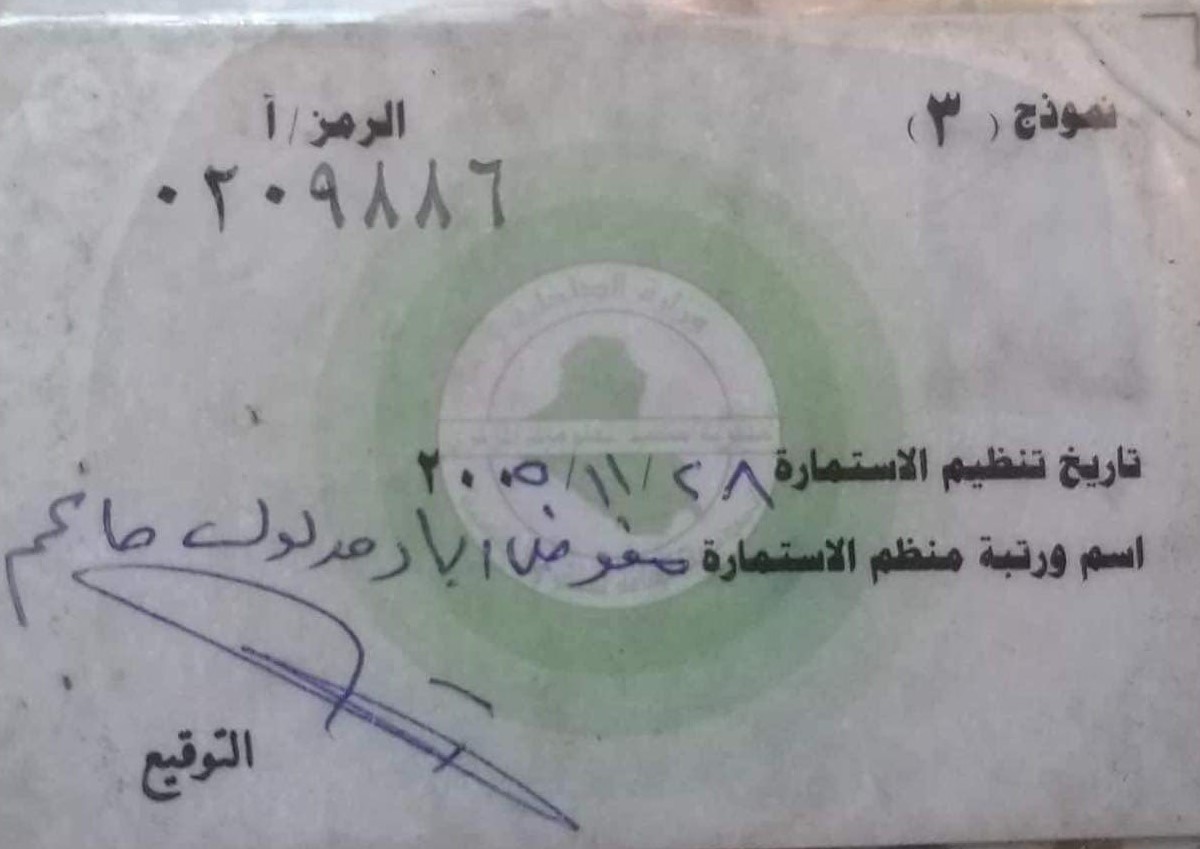 نموذج ( ٣ )
الرمز / آ
٠٢٠٩٨٨٦
وزارة الداخلية
تاريخ تنظيم الاستمارة ٢٨ / ١١ / ٢٠٠٥
اسم ورتبة منظم الاستمارة مفوض اياد مدلول غانم
التوقيع